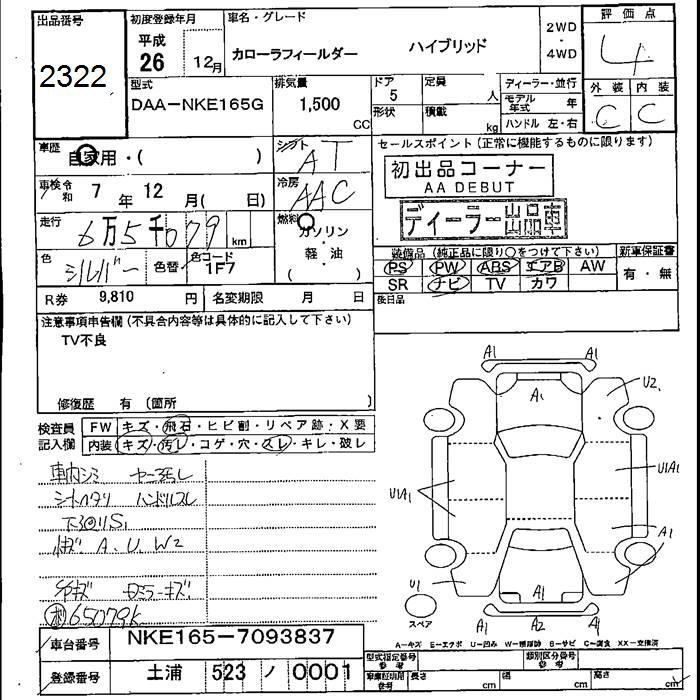 出品番号
2322
初度登録年月
平成
26 12月
車名・グレード
カローラフィールダー ハイブリッド
2WD
・
4WD
評価点
4
型式
DAA-NKE165G
排気量
1,500
CC
ドア
5
形状
定員
人
積載
kg
ディーラー・並行
モデル年式 年
ハンドル 左・右
外装 内装
C C
車歴
自家用・( )
シフト
AT
セールスポイント(正常に機能するものに限ります)
初出品コーナー
AA DEBUT
ディーラー出品車
車検 令和 7 年 12 月( 日)
冷房
AAC
走行
6万5千079 km
燃料
ガソリン
・
軽・油
( )
色
シルバー
色替
色コード
1F7
装備品(純正品に限り○をつけて下さい)
新車保証書
PS PW ABS エアB AW
SR ナビ TV カワ
有・無
後日品
R券 9,810 円
名変期限 月 日
注意事項申告欄(不具合内容等は具体的に記入して下さい)
TV不良
修復歴 有 (箇所 )
検査員
記入欄
FW キズ・飛石・ヒビ割・リペア跡・X要
内装 キズ・汚レ・コゲ・穴・スレ・キレ・破レ
車内シミ
シートヘタリ ハンドルスレ
A、U、W2
65079K
A1 A1
A1
U2
U1A1
U1A1
A1
A1
U1
スペア
A1 A2 A1
A-キズ E-エクボ U-凹み W-補修跡 B-サビ C-腐食 XX-交換済
車台番号
NKE165-7093837
登録番号
土浦 523 ノ 0001
型式指定番号
参考
類別区分番号
参考
車庫証明用
参考
長さ cm
幅 cm
高さ cm